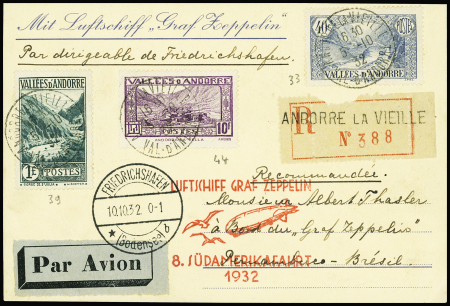 Mit Luftschiff „Graf Zeppelin"
Par dirigeable de Friedrichshafen.
40c POSTES
VALLÉES D'ANDORRE
33
VALLÉES D'ANDORRE
1F POSTES
39
VALLÉES D'ANDORRE
POSTES
10F
44
ANDORRE LA VIEILLE
R N° 388
Recommandée
FRIEDRICHSHAFEN
10.10.32. 0-1
* (Bodensee) b
LUFTSCHIFF GRAF ZEPPELIN
8. SÜDAMERIKAFAHRT
1932
Monsieur Albert Thasler
à Bord du „Graf Zeppelin"
Brésil.
Par Avion